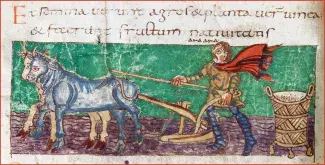 Et seminauerunt agros & plantauer uinea
& fecer fructum natiuitatis